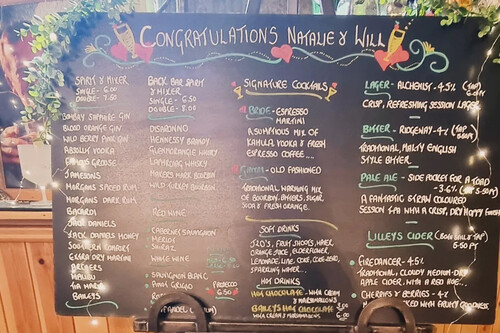 CONGRATULATIONS NATALIE & WILL
SPIRIT & MIXER
SINGLE - 6.00
DOUBLE - 7.50
BOMBAY SAPPHIRE GIN
BLOOD ORANGE GIN
WILD BERRY PINK GIN
ABSOLUT VODKA
FAMOUS GROUSE
JAMESONS
MORGANS SPICED RUM
MORGANS DARK RUM
BACARDI
JACK DANIELS
JACK DANIELS HONEY
SOUTHERN COMFORT
CRISPA DRY MARTINI
ARCHERS
MALIBU
TIA MARIA
BAILEYS
BACK BAR SPIRIT
& MIXER
SINGLE - 6.50
DOUBLE - 8.00
DISARONNO
HENNESSY BRANDY
GLENMORANGIE WHISKY
LAPHROAIG WHISKY
MAKERS MARK BOURBON
WILD TURKEY BOURBON
RED WINE
CABERNET SAUVIGNON
MERLOT
SHIRAZ
WHITE WINE
SAUVIGNON BLANC
PINOT GRIGIO
PROSECCO
6.50
SIGNATURE COCKTAILS
BRIDE - ESPRESSO
MARTINI
A SUMPTUOUS MIX OF
KAHLUA, VODKA & FRESH
ESPRESSO COFFEE...
GROOM - OLD FASHIONED
TRADITIONAL WARMING MIX
OF BOURBON, BITTERS, SUGAR,
SODA & FRESH ORANGE.
SOFT DRINKS
J2O'S, FRUIT SHOOTS, WATER,
ORANGE JUICE, ELDERFLOWER,
LEMONADE, LIME, COKE, COKE-ZERO,
SPARKLING WATER...
HOT DRINKS
HOT CHOCOLATE - WITH CREAM
& MARSHMALLOWS
BAILEYS HOT CHOCOLATE
WITH CREAM & MARSHMALLOWS
LAGER - ALCHEMIST - 4.5%
CRISP, REFRESHING SESSION LAGER
BITTER - RIDGEWAY - 4%
TRADITIONAL, MALTY ENGLISH
STYLE BITTER
PALE ALE - SIDE POCKET FOR A TOAD
- 3.6%
A FANTASTIC STRAW COLOURED
SESSION IPA WITH A CRISP, DRY HOPPY FINISH
LILLEYS CIDER
5.50 PT
CREDANCER - 4.5%
TRADITIONAL, CLOUDY MEDIUM-DRY
APPLE CIDER, WITH A RED HUE...
CHERRIES & BERRIES - 4%
WITH FRUITY GOODNESS